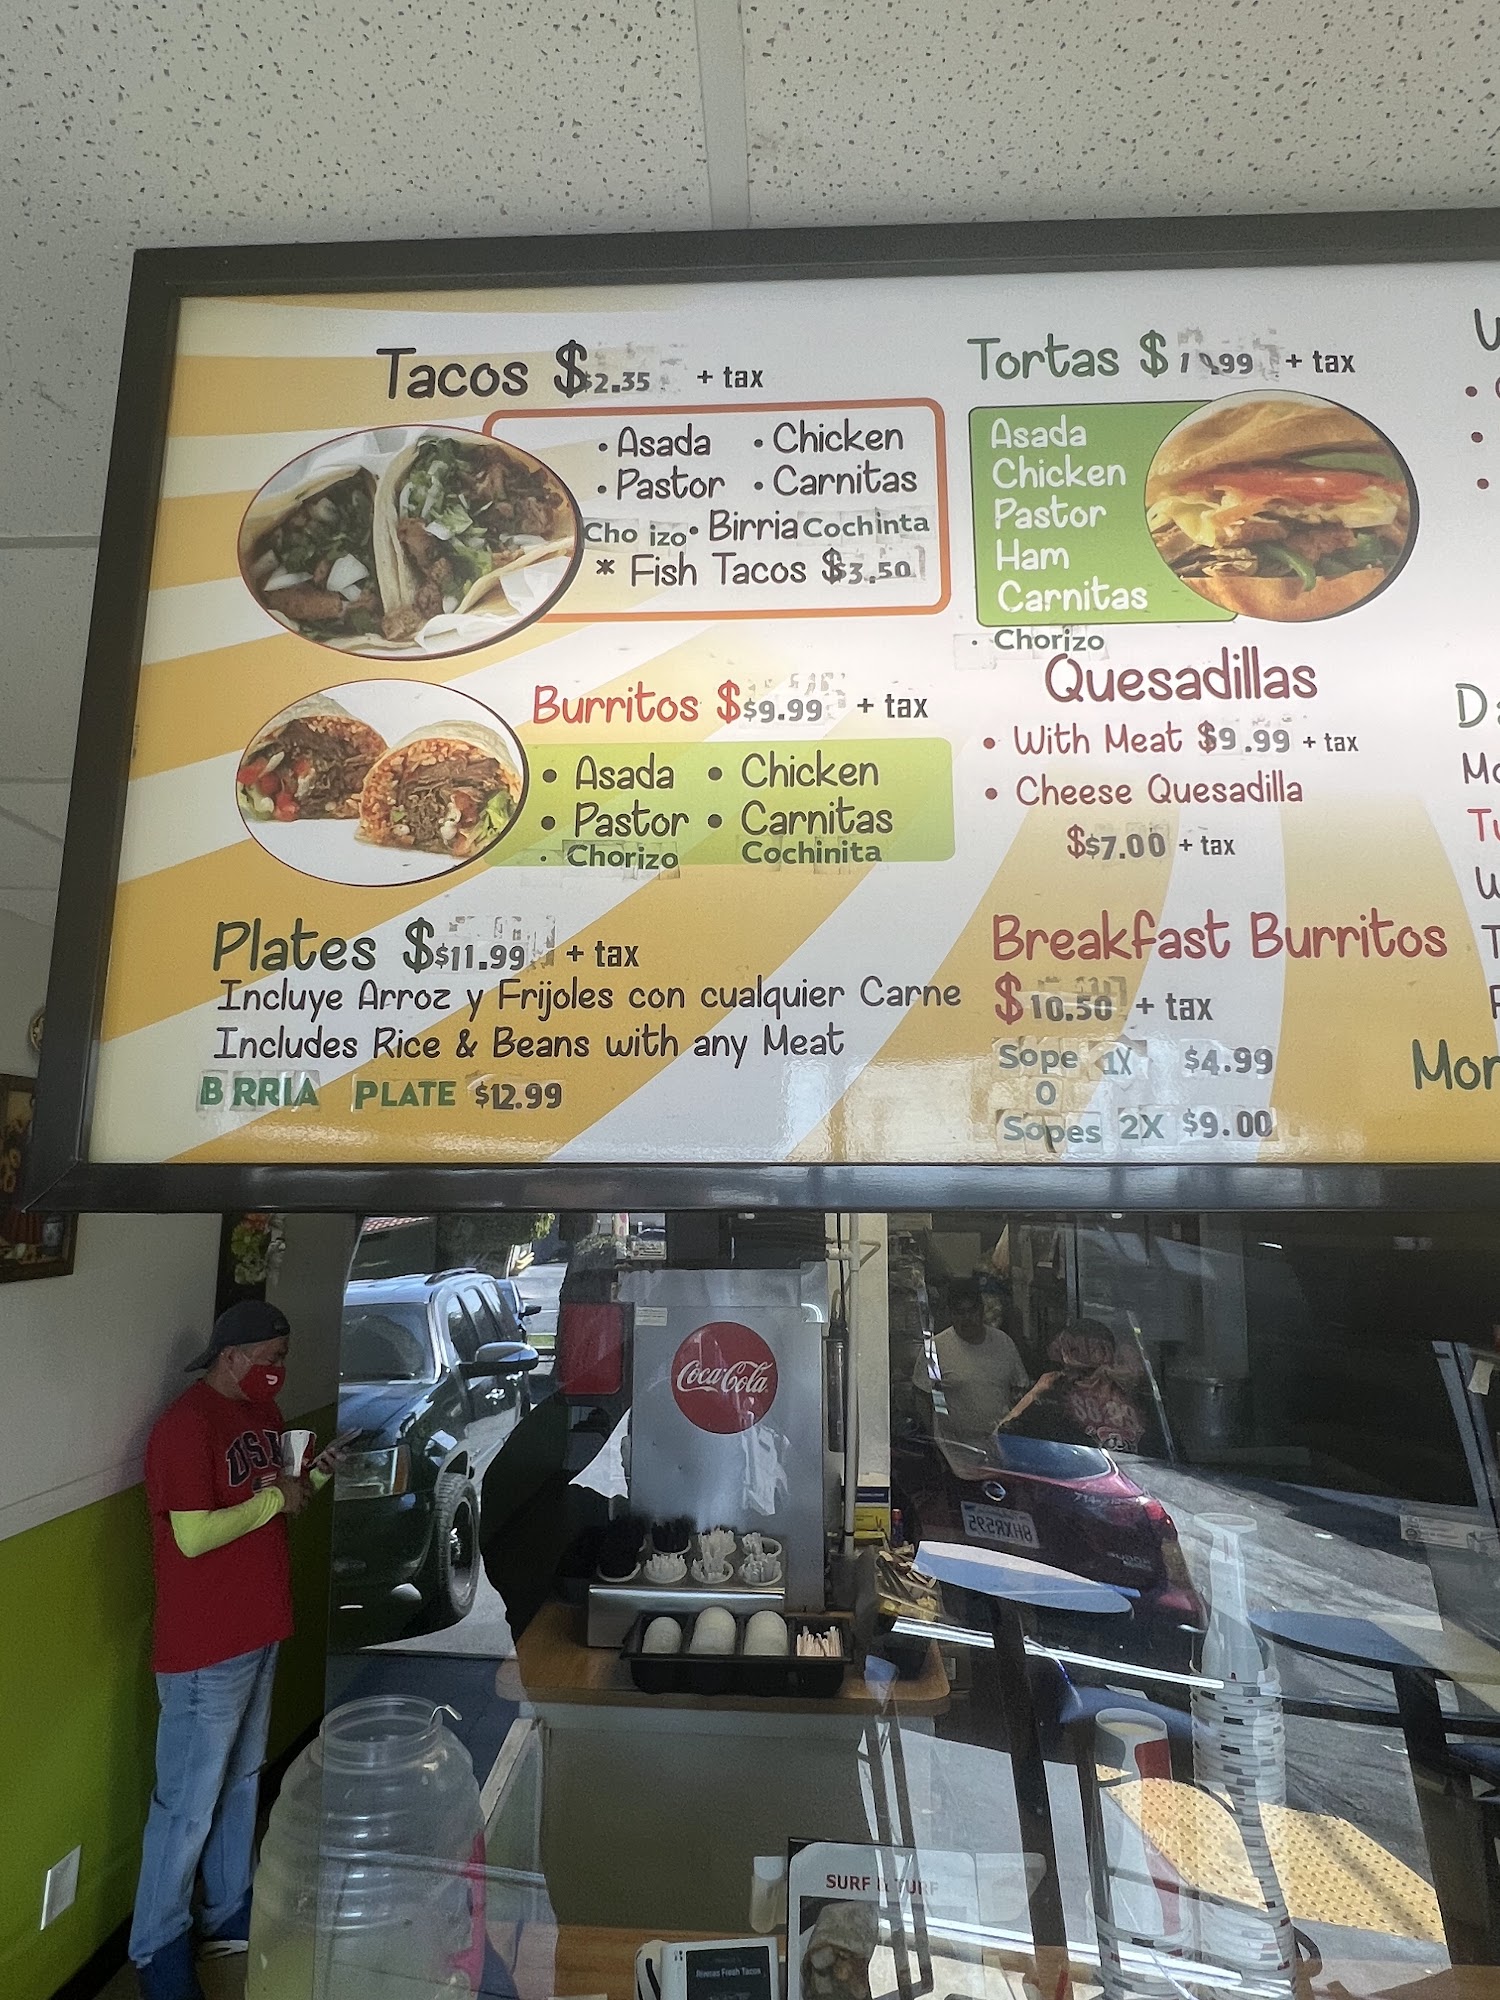 Tacos $$2.35 + tax
• Asada • Chicken
• Pastor • Carnitas
Cho izo • Birria Cochinta
* Fish Tacos $3.50
Burritos $$9.99 + tax
• Asada • Chicken
• Pastor • Carnitas
• Chorizo Cochinita
Plates $$11.99 + tax
Incluye Arroz y Frijoles con cualquier Carne
Includes Rice & Beans with any Meat
B RRIA PLATE $12.99
Tortas $ .99 + tax
Asada
Chicken
Pastor
Ham
Carnitas
• Chorizo
Quesadillas
• With Meat $9.99 + tax
• Cheese Quesadilla
$$7.00 + tax
Breakfast Burritos
$10.50 + tax
Sope 1X $4.99
O
Sopes 2X $9.00
Mor
USA
Coca-Cola
8HXR595
SURF & TURF
Fresh Tacos